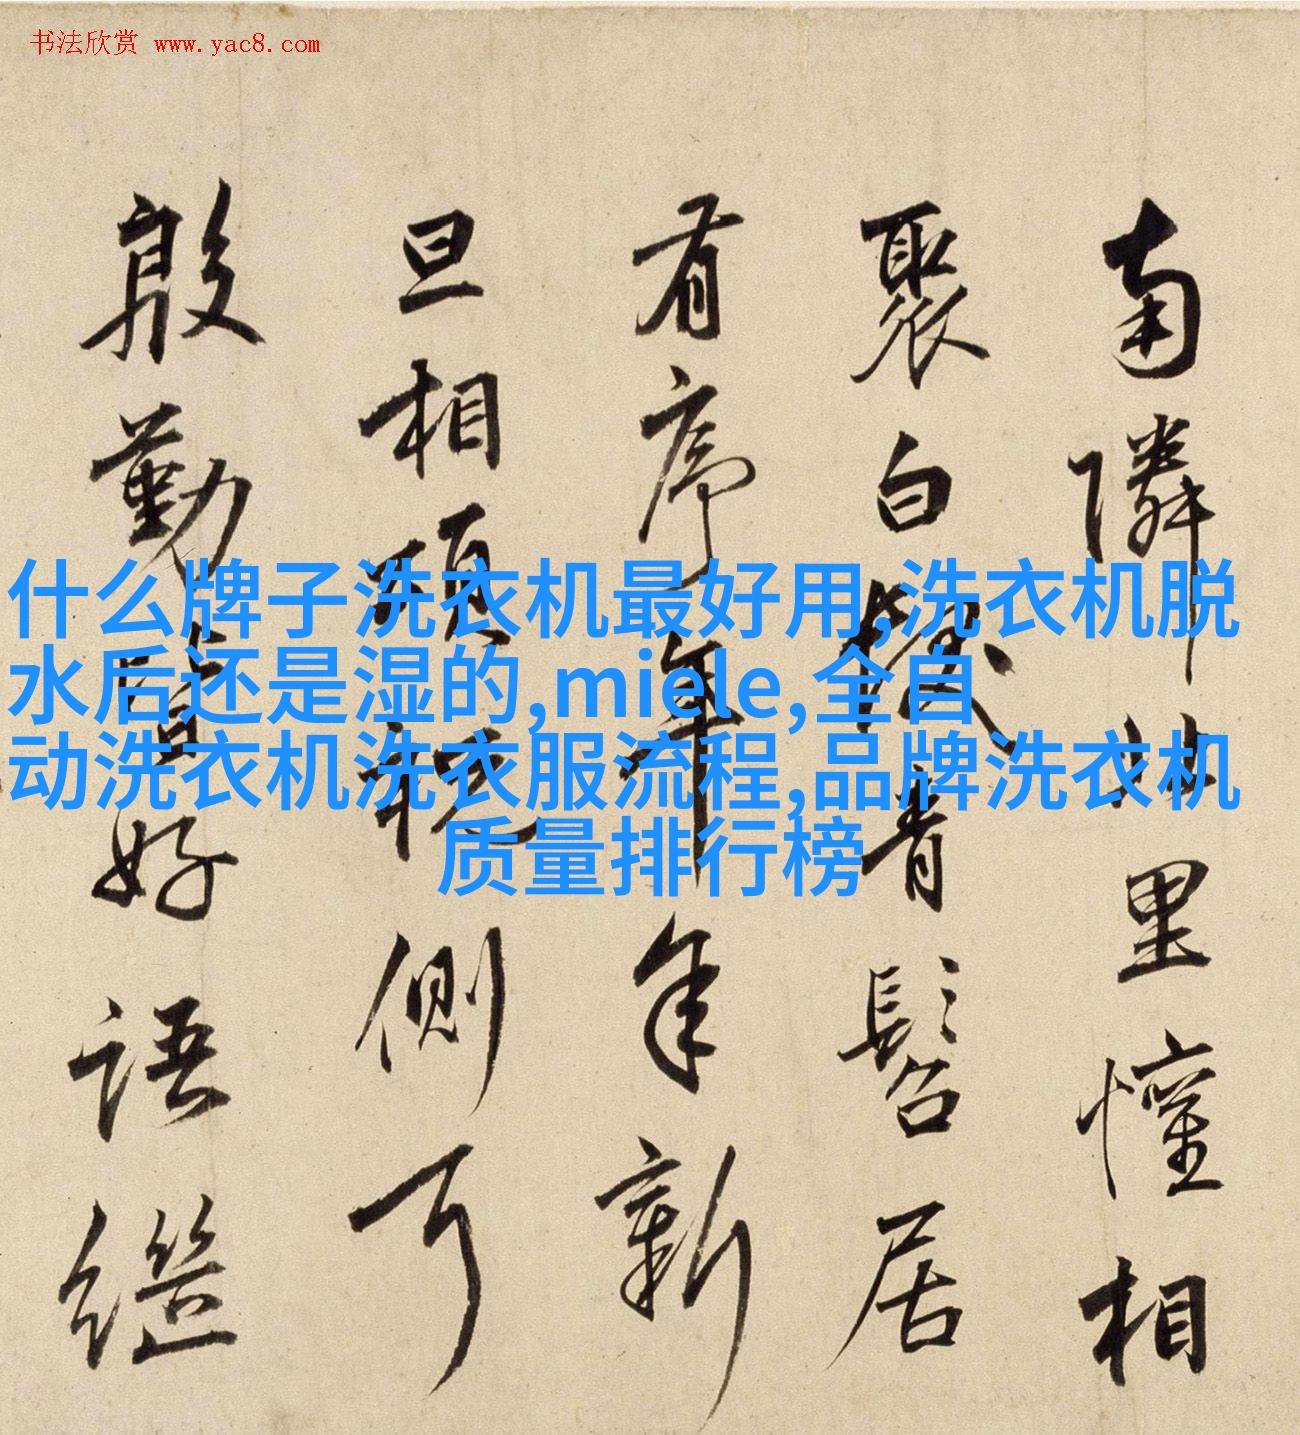 书法欣赏 www.yac8.com
南隣北里懽相
聚白髮青髫居
有序年年新
旦相頌祝側耳
殷勤好語繼
什么牌子洗衣机最好用,洗衣机脱
水后还是湿的,miele,全自
动洗衣机洗衣服流程,品牌洗衣机
质量排行榜